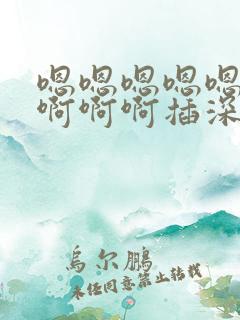 嗯嗯嗯嗯嗯
啊啊啊插深
烏尔鵬
未经同意禁止转载